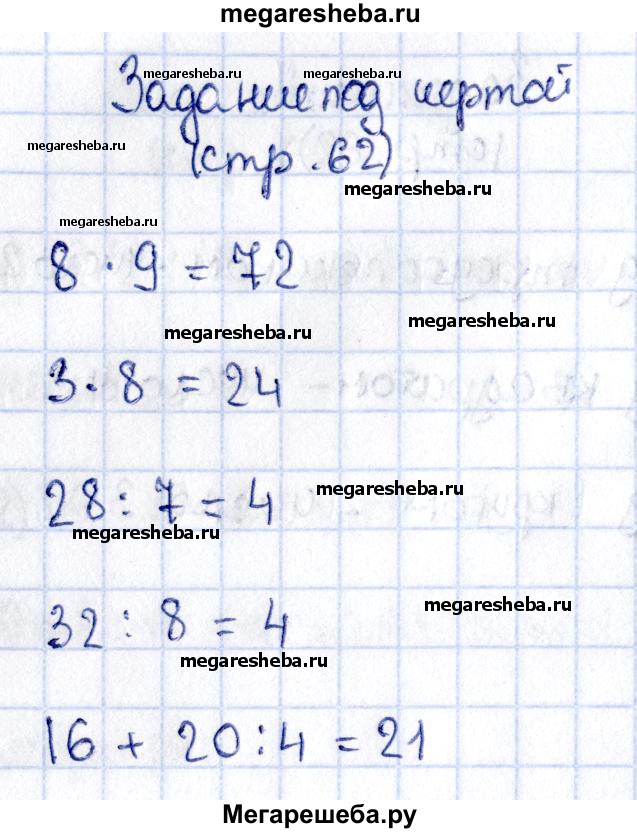 megaresheba.ru
megaresheba.ru megaresheba.ru
Задание под чертой
megaresheba.ru
(стр. 62)
megaresheba.ru
megaresheba.ru
8 · 9 = 72
megaresheba.ru
megaresheba.ru
3 · 8 = 24
28 : 7 = 4
megaresheba.ru
megaresheba.ru
32 : 8 = 4
megaresheba.ru
megaresheba.ru
16 + 20 : 4 = 21
Мегарешеба.ру